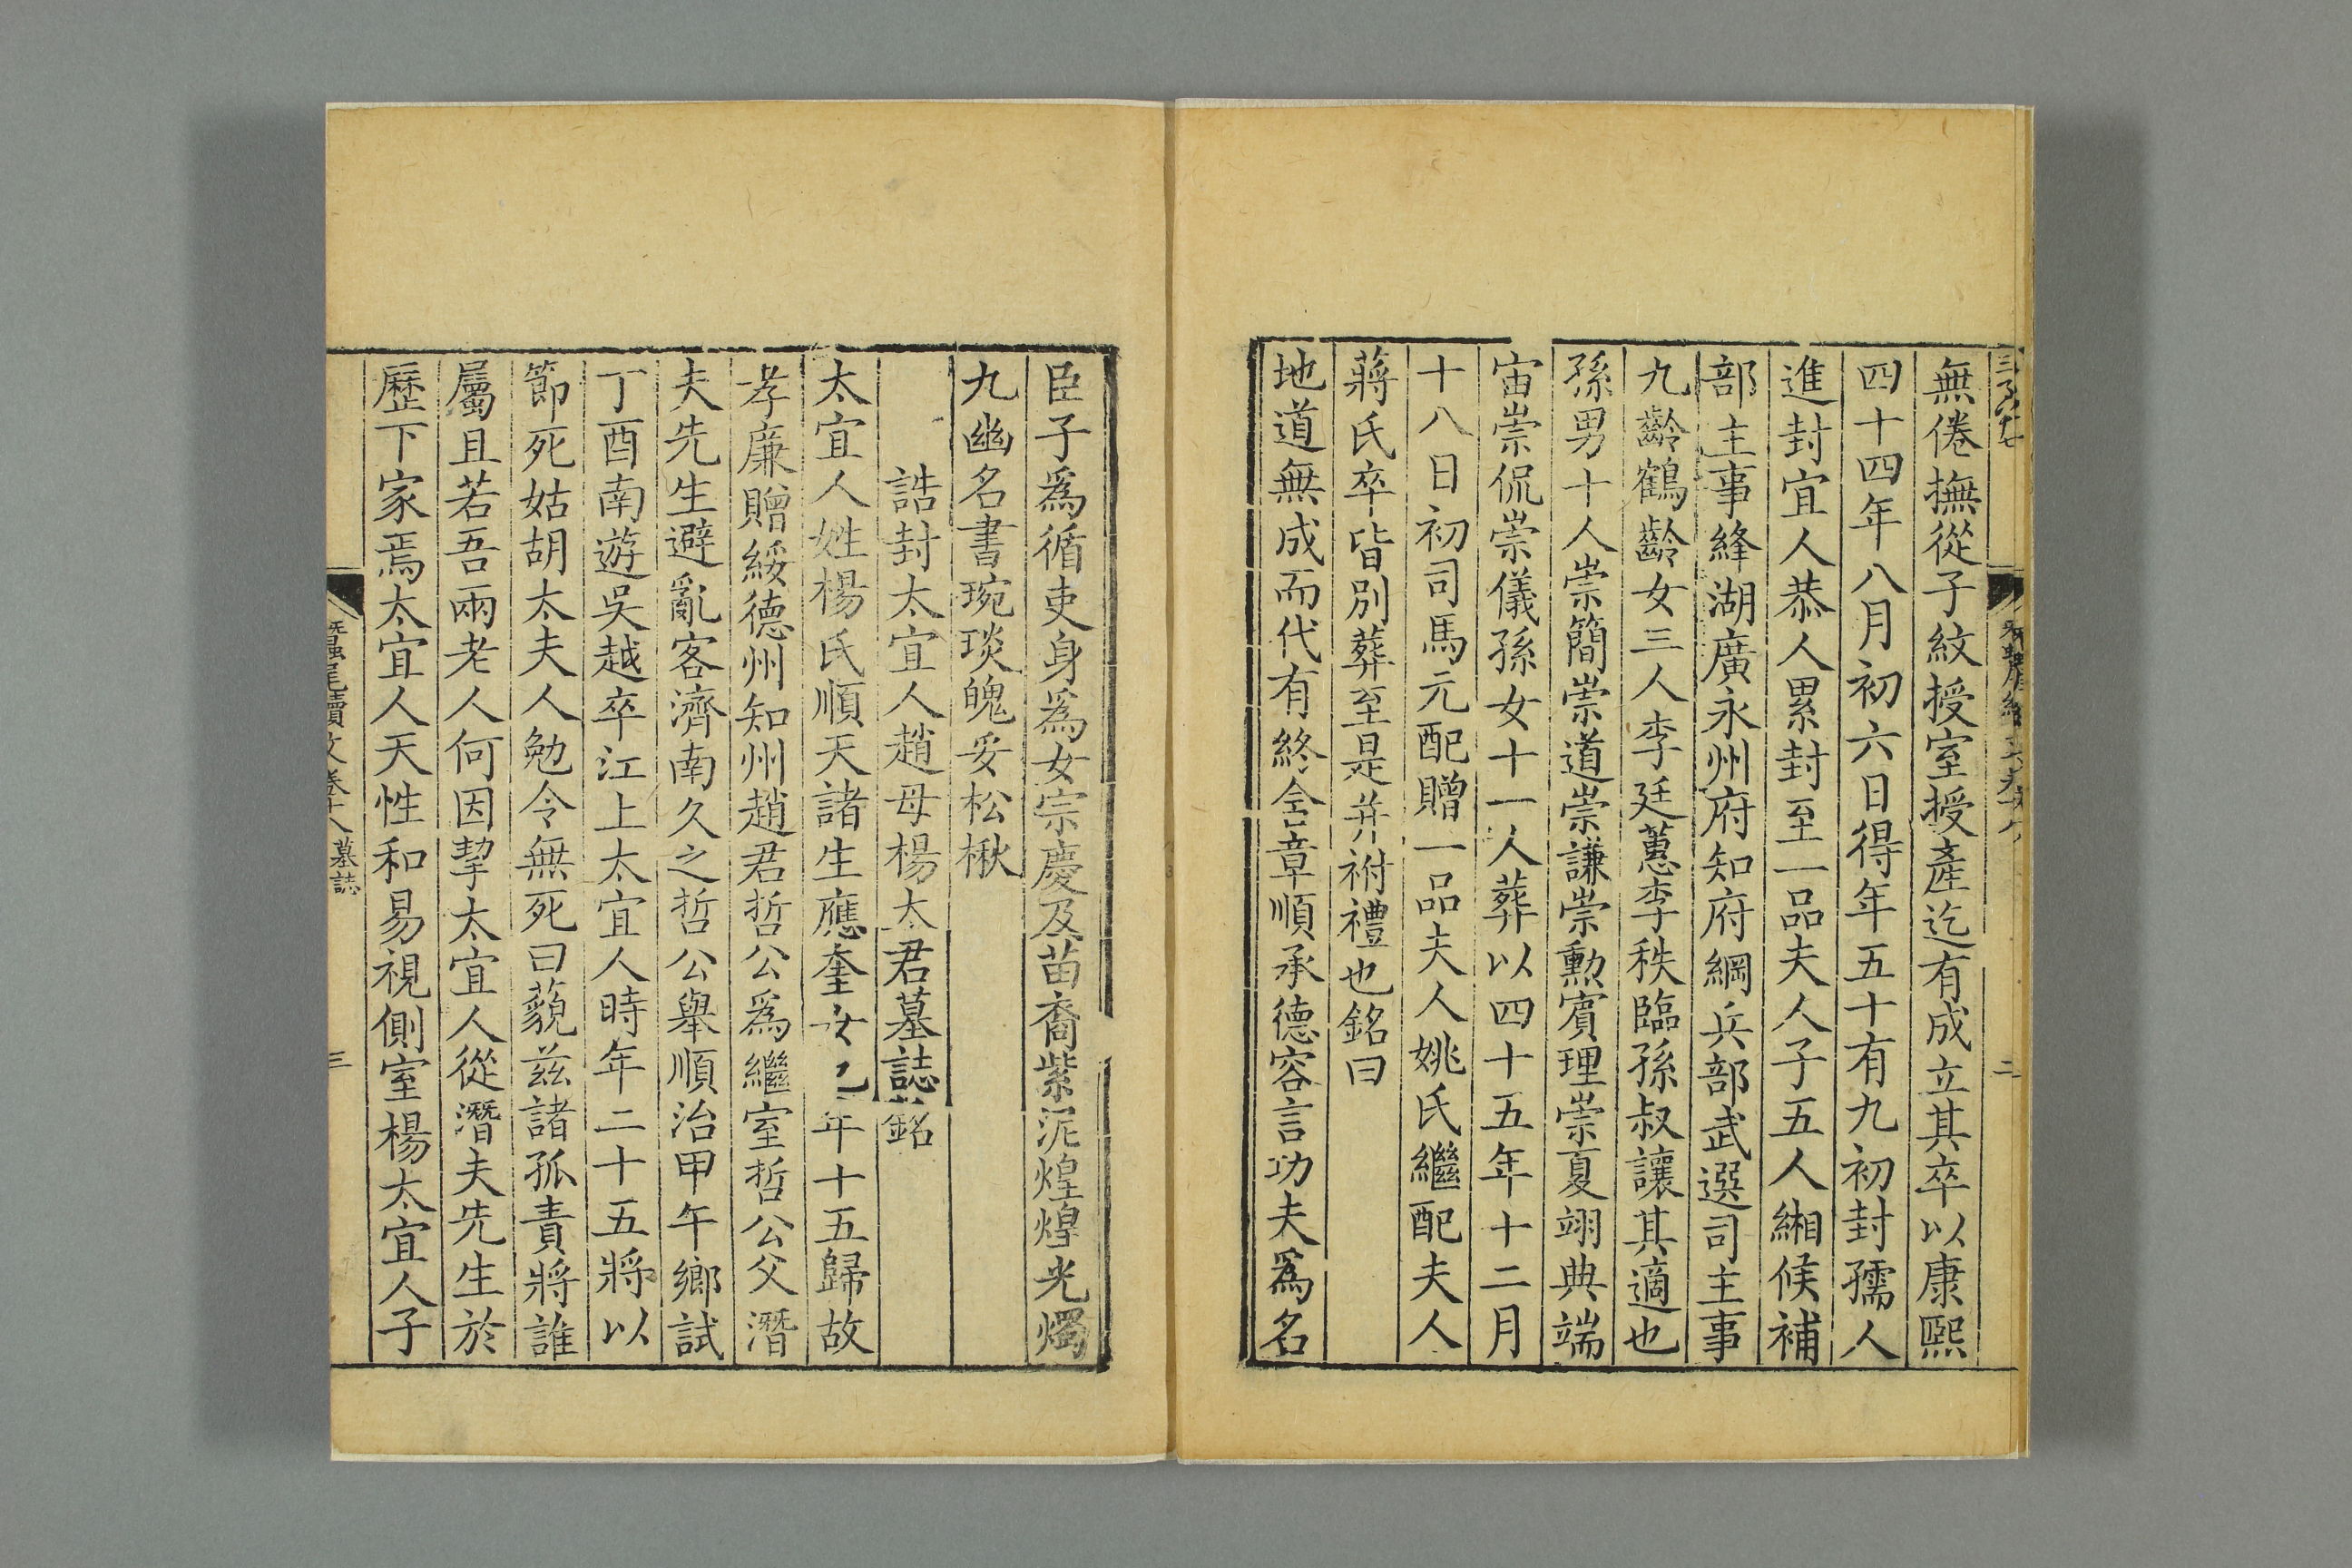 無倦撫從子紋授室授產迄有成立其卒以康熙
四十四年八月初六日得年五十有九初封孺人
進封宜人恭人累封至一品夫人子五人緗候補
部主事絳湖廣永州府知府綱兵部武選司主事
九齡鶴齡女三人李廷蕙李秩臨孫叔讓其適也
孫男十人崇簡崇道崇謙崇勳賓理崇夏翊典端
宙崇侃崇儀孫女十一人葬以四十五年十二月
十八日初司馬元配贈一品夫人姚氏繼配夫人
蔣氏卒皆別葬至是并祔禮也銘曰
地道無成而代有終含章順承德容言功夫爲名
臣子爲循吏身爲女宗慶及苗裔紫泥煌煌光燭
九幽名書琬琰魄妥松楸
誥封太宜人趙母楊太君墓誌銘
太宜人姓楊氏順天諸生應奎女也年十五歸故
孝廉贈綏德州知州趙君哲公爲繼室哲公父潛
夫先生避亂客濟南久之哲公舉順治甲午鄉試
丁酉南遊吳越卒江上太宜人時年二十五將以
節死姑胡太夫人勉令無死曰藐兹諸孤責將誰
屬且若吾兩老人何因挈太宜人從潛夫先生於
歷下家焉太宜人天性和易視側室楊太宜人子
蠶尾續文卷十八墓誌
三